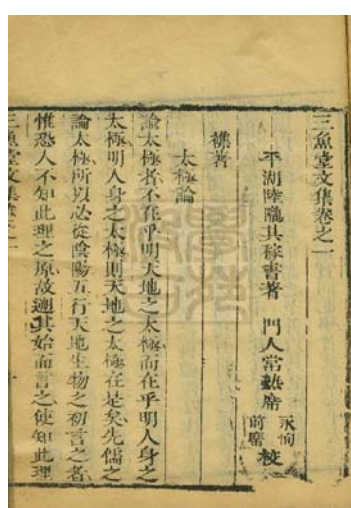 三魚堂文集卷之一
平湖陸隴其稼書著 門人常熟席永恂前席校
襍著
太極論
論太極者不在乎明天地之太極而在乎明人身之
太極明人身之太極則天地之太極在是矣先儒之
論太極所以必從陰陽五行天地生物之初言之者
惟恐人不知此理之原故遡其始而言之使知此理
三魚堂文集卷之一 一